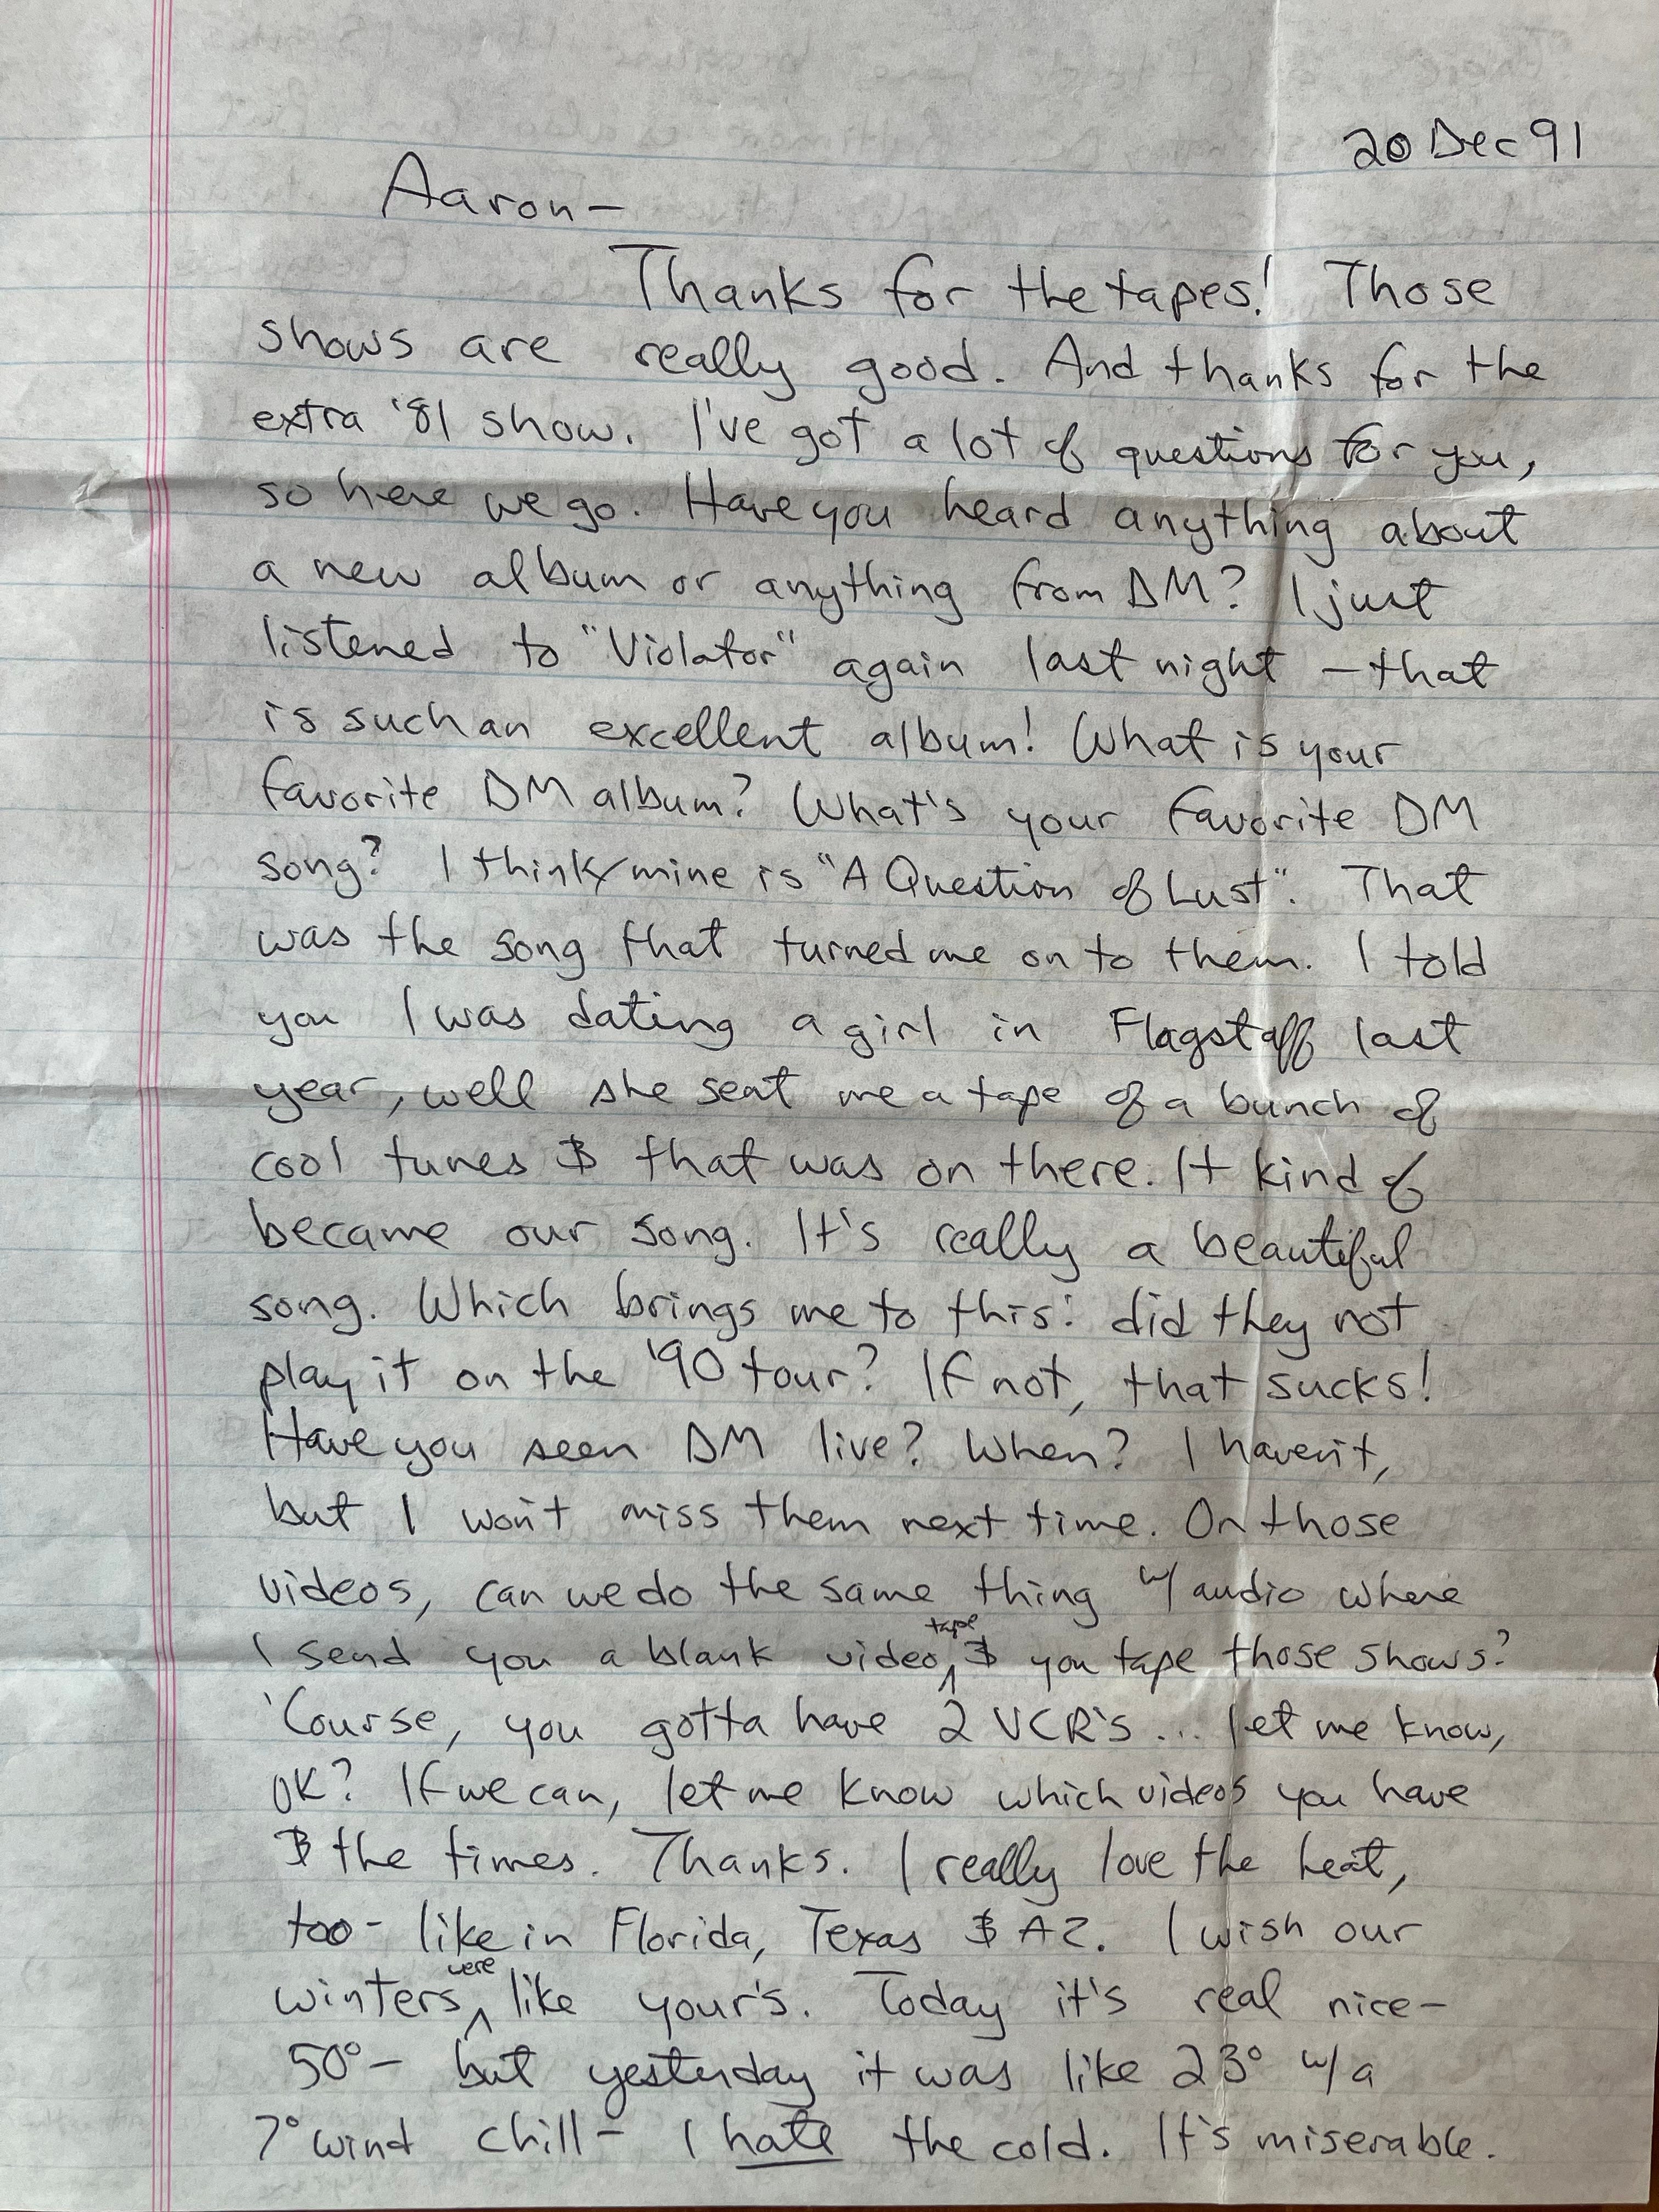 20 Dec 91
Aaron—
Thanks for the tapes! Those
shows are really good. And thanks for the
extra '81 show. I've got a lot of questions for you,
so here we go. Have you heard anything about
a new album or anything from DM? I just
listened to "Violator" again last night — that
is such an excellent album! What is your
favorite DM album? What's your favorite DM
song? I think mine is "A Question of Lust". That
was the song that turned me on to them. I told
you I was dating a girl in Flagstaff last
year, well she sent me a tape of a bunch of
cool tunes & that was on there. It kind of
became our song. It's really a beautiful
song. Which brings me to this: did they not
play it on the '90 tour? If not, that sucks!
Have you seen DM live? When? I haven't,
but I won't miss them next time. On those
videos, can we do the same thing w/ audio where
I send you a blank video tape & you tape those shows?
'Course, you gotta have 2 VCR's ... let me know,
OK? If we can, let me know which videos you have
& the times. Thanks. I really love the heat,
too - like in Florida, Texas & AZ. I wish our
winters were like your's. Today it's real nice—
50° — but yesterday it was like 23° w/ a
7° wind chill — I hate the cold. It's miserable.